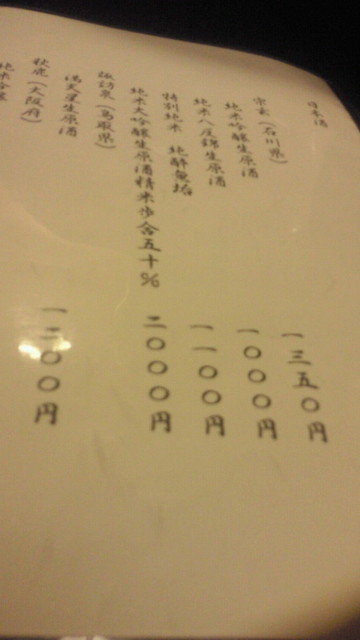 日本酒
宗玄(石川県)
純米吟醸生原酒 一三五〇円
純米八反錦生原酒 一〇〇〇円
特別純米 純酔無垢 一一〇〇円
純米大吟醸生原酒精米歩合五十% 二〇〇〇円
諏訪泉(鳥取県)
満天星生原酒 一二〇〇円
秋鹿(大阪府)
純米吟醸